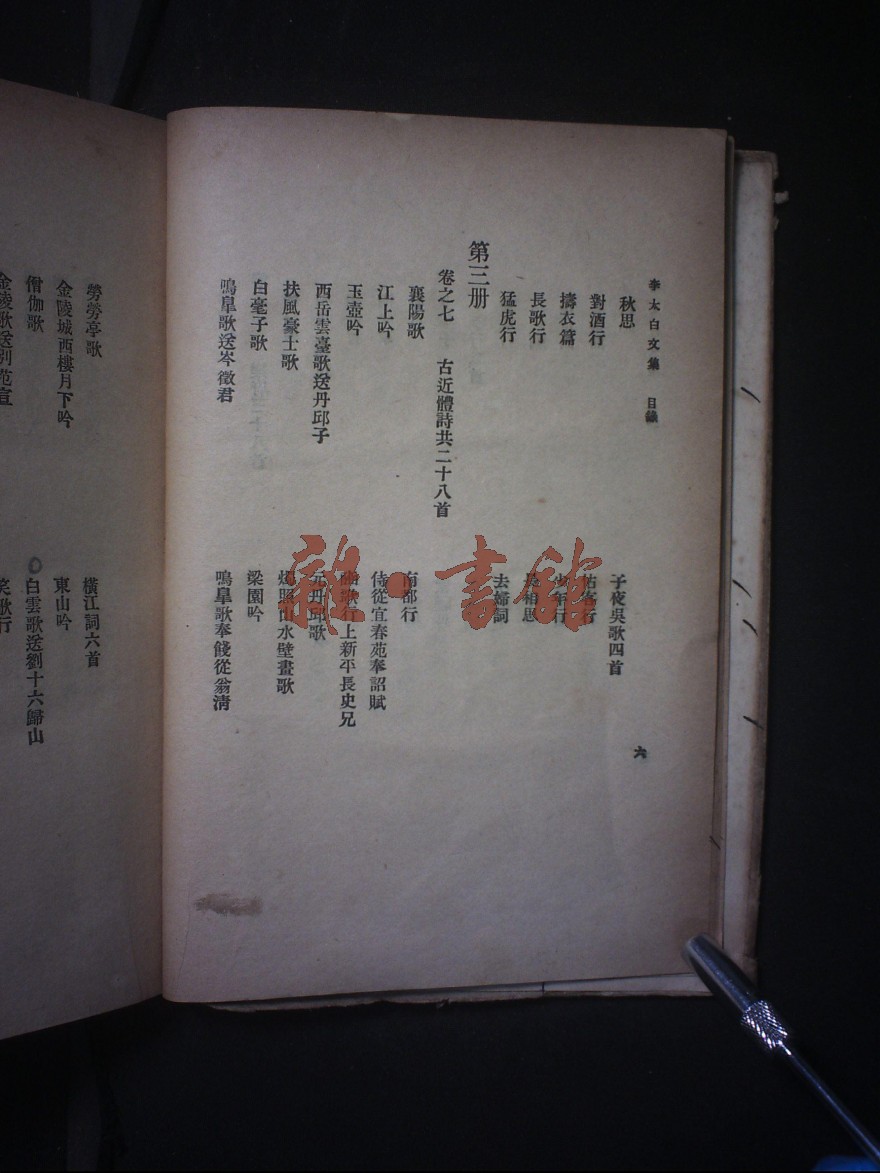 李太白文集 目錄 六
秋思 子夜吳歌四首
對酒行 估客行
擣衣篇 少年行
長歌行 長相思
猛虎行 去婦詞
第三册
卷之七 古近體詩共二十八首
襄陽歌 南都行
江上吟 侍從宜春苑奉詔賦
玉壺吟 豳歌行上新平長史兄
西岳雲臺歌送丹邱子 元丹邱歌
扶風豪士歌 燭照山水壁畫歌
白毫子歌 梁園吟
鳴皐歌送岑徵君 鳴皐歌奉餞從翁清
勞勞亭歌 橫江詞六首
金陵城西樓月下吟 東山吟
僧伽歌 白雲歌送劉十六歸山
金陵歌送別范宣 笑歌行
雜·書館